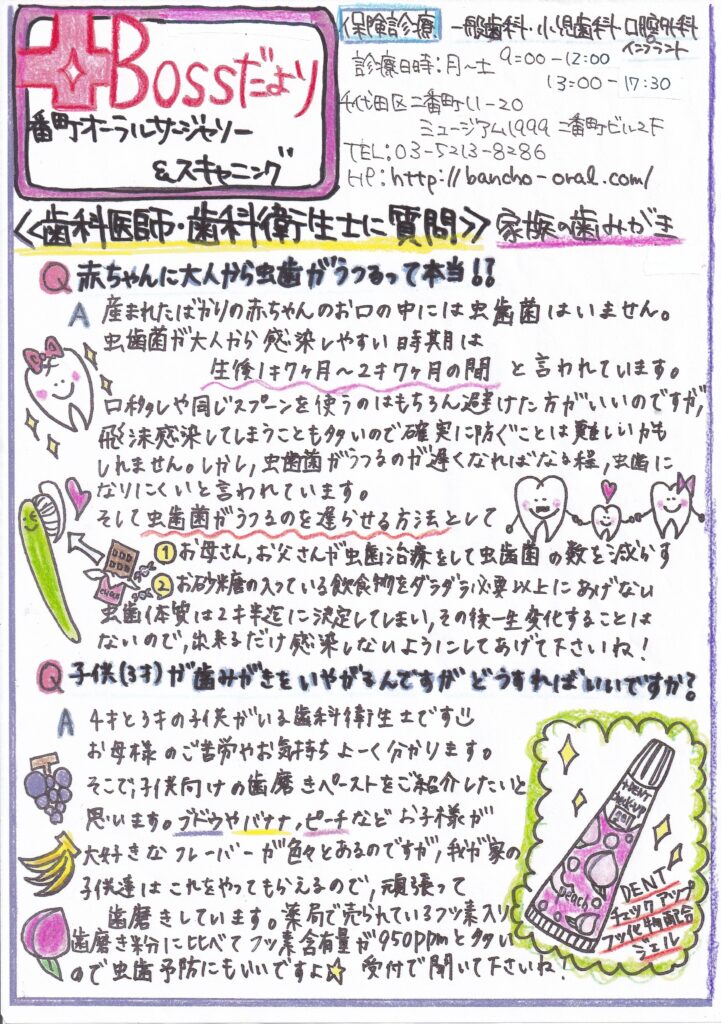 Bossだより
番町オーラルサージャリー
&スキャニング
保険診療 一般歯科・小児歯科・口腔外科
インプラント
診療日時:月~土 9:00-12:00
13:00-17:30
千代田区二番町11-20
ミュージアム1999 二番町ビル2F
TEL:03-5213-8286
HP:http://bancho-oral.com/
≪歯科医師・歯科衛生士に質問≫ 家族の歯みがき
Q 赤ちゃんに大人から虫歯がうつるって本当!!
A 産まれたばかりの赤ちゃんのお口の中には虫歯菌はいません。
虫歯菌が大人から感染しやすい時期は
生後1才7ヶ月~2才7ヶ月の間 と言われています。
口移しや同じスプーンを使うのはもちろん避けた方がいいのですが、
飛沫感染してしまうことも多いので確実に防ぐことは難しいかも
しれません。しかし、虫歯菌がうつるのが遅くなればなる程、虫歯に
なりにくいと言われています。
そして虫歯菌がうつるのを遅らせる方法として
① お母さん、お父さんが虫歯治療をして虫歯菌の数を減らす
② お砂糖の入っている飲食物をダラダラ必要以上にあげない
虫歯体質は2才半迄に決定してしまい、その後一生変化することは
ないので、出来るだけ感染しないようにしてあげて下さいね!
Q 子供(3才)が歯みがきをいやがるんですがどうすればいいですか?
A 4才と3才の子供がいる歯科衛生士です
お母様のご苦労やお気持ちよーく分かります。
そこで、子供向けの歯磨きペーストをご紹介したいと
思います。ブドウやバナナ,ピーチなどお子様が
大好きなフレーバーが色々とあるのですが、我が家の
子供達はこれをやってもらえるので、頑張って
歯磨きしています。薬局で売られているフッ素入り
歯磨き粉に比べてフッ素含有量が950ppmと多い
ので虫歯予防にもいいですよ☆ 受付で聞いて下さいね!
DENT
Check-up
gel
peach
DENT
チェックアップ
フッ化物配合
ジェル